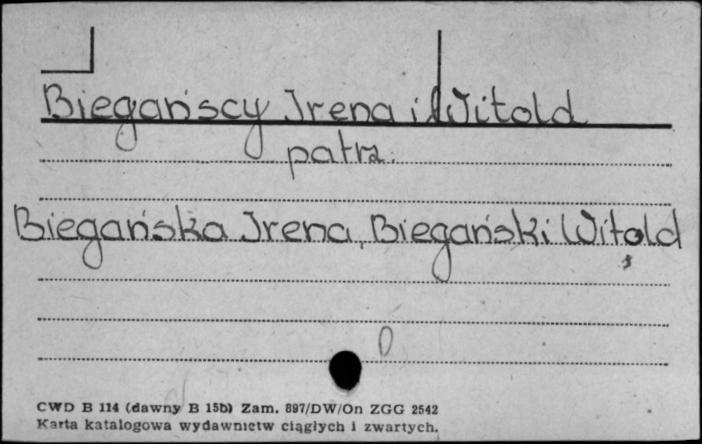 Biegańscy Irena i Witold
patrz:
Biegańska Irena, Biegański Witold
0
CWD B 114 (dawny B 15b) Zam. 897/DW/On ZGG 2542
Karta katalogowa wydawnictw ciągłych i zwartych.